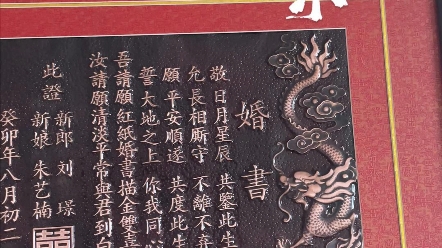 婚書
敬日月星辰 共鑒此生
允長相厮守 不離不弃
願平安順遂 共度此生
誓大地之上 你我同心
吾請願紅紙婚書描金雙喜
汝請願清淡平常與君到白
此證
新郎 刘 璟
新娘 朱艺楠
癸卯年八月初二
囍